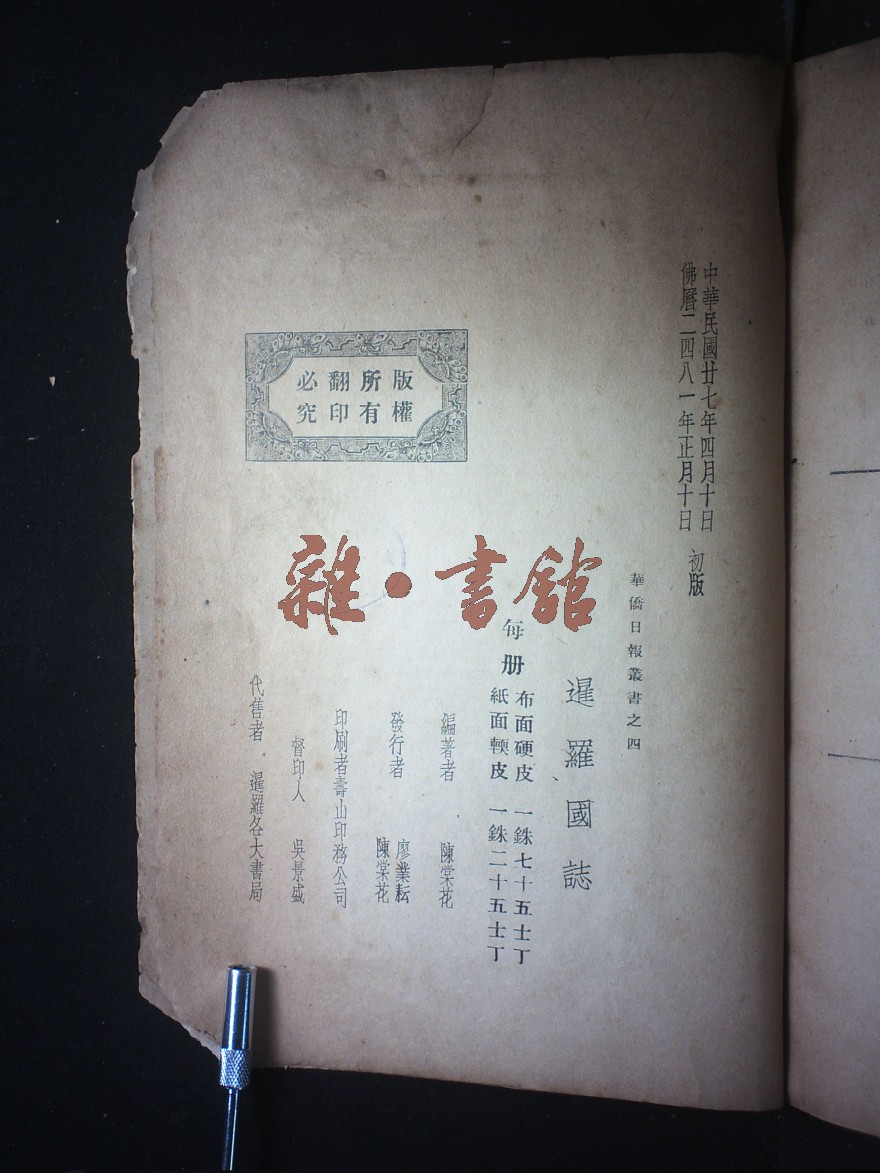 中華民國廿七年四月十日
佛曆二四八一年正月十日
初版
華僑日報叢書之四
暹羅國誌
每册
布面硬皮 一銖七十五士丁
紙面輭皮 一銖二十五士丁
編著者 陳棠花
發行者 廖業耘
陳棠花
印刷者壽山印務公司
督印人 吳景盛
代售者 暹羅各大書局
版權
所有
翻印
必究
雜·書館